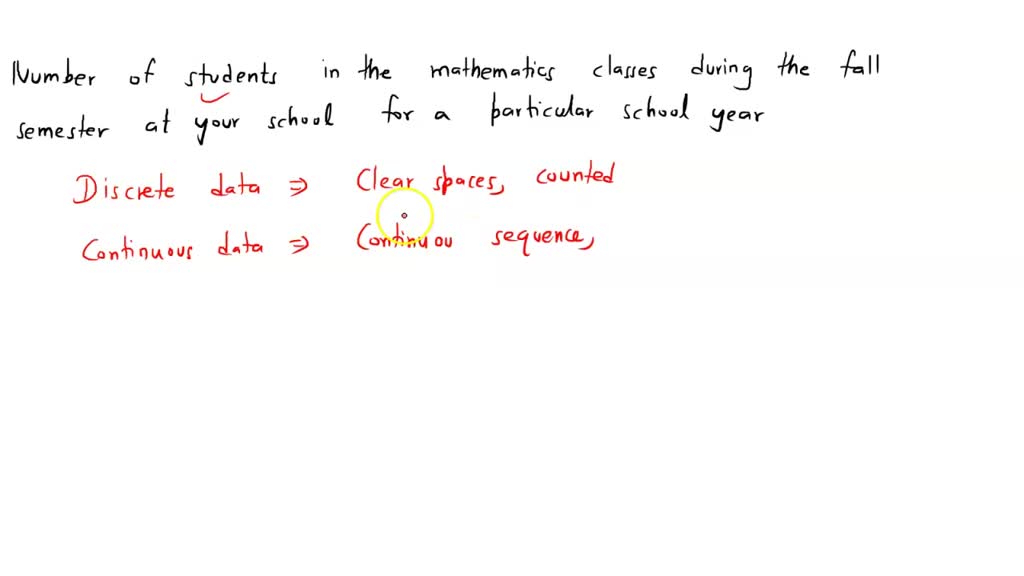 Number of students in the mathematics classes during the fall
semester at your school for a particular school year
Discrete data ⇒ Clear spaces, counted
Continuous data ⇒ Continuou sequence,